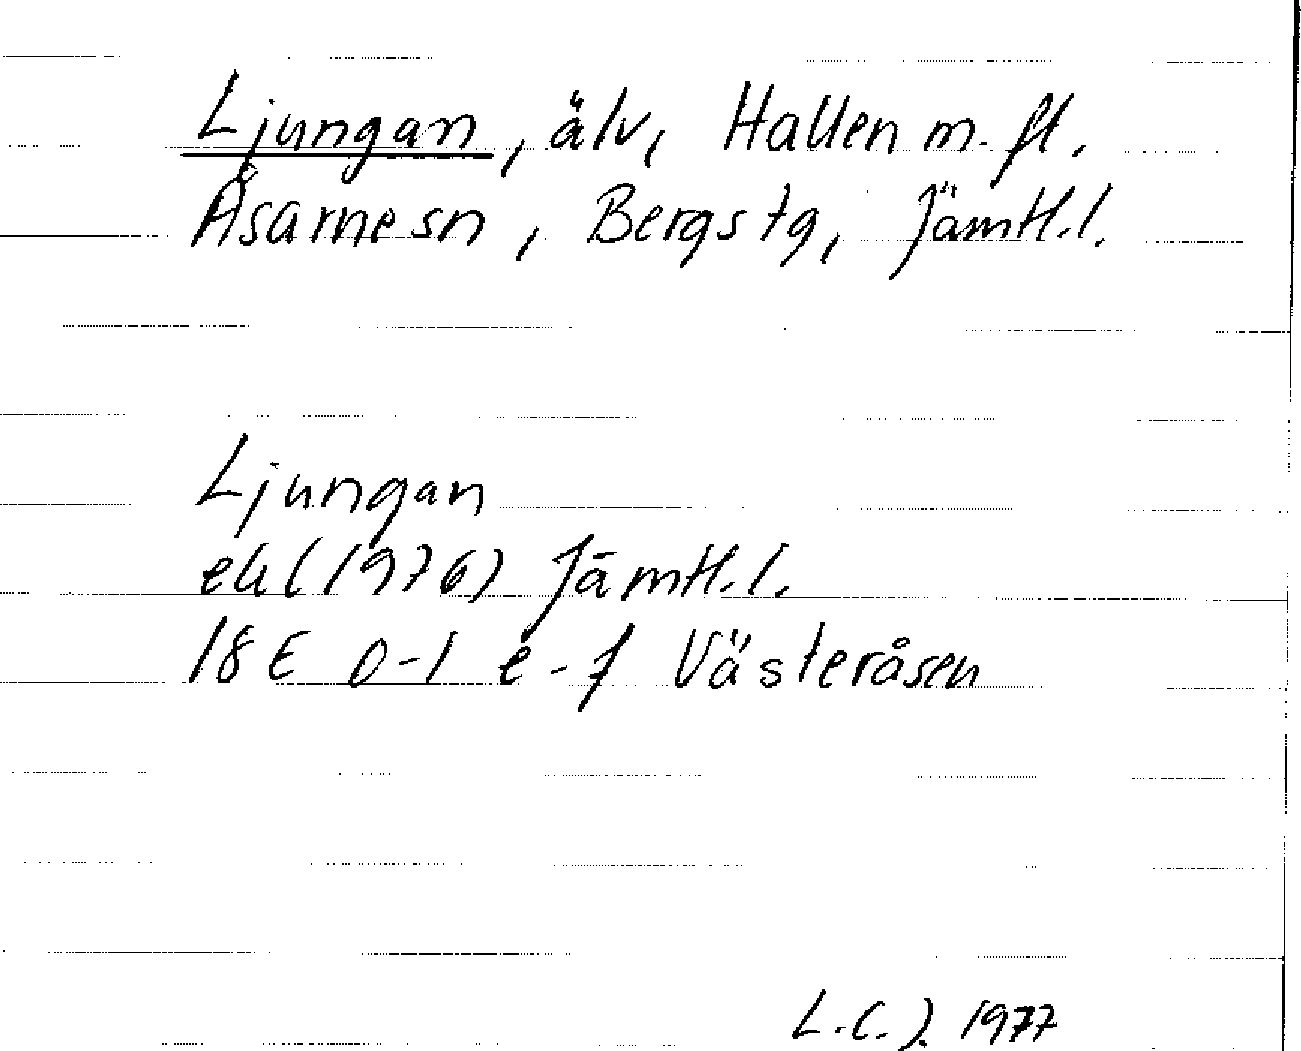 Ljungan, älv, Hallen m.fl.
Åsarnesn, Bergs tg, Jämtl.l.
Ljungan
ek (1976) Jämtl.l.
18E 0-1 e-f Västeråsen
L.C.J. 1977